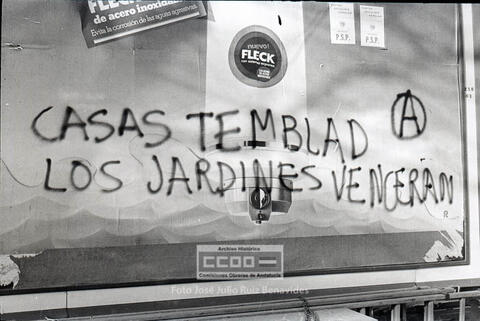 FLECK
de acero inoxidab
Evita la corrosión de las aguas agresivas
P.S.P.
P.S.P.
¡nuevo!
FLECK
CASAS TEMBLAD Ⓐ
LOS JARDINES VENCERAN
R
Archivo Histórico
CCOO
Comisiones Obreras de Andalucía
Foto José Julio Ruiz Benavides